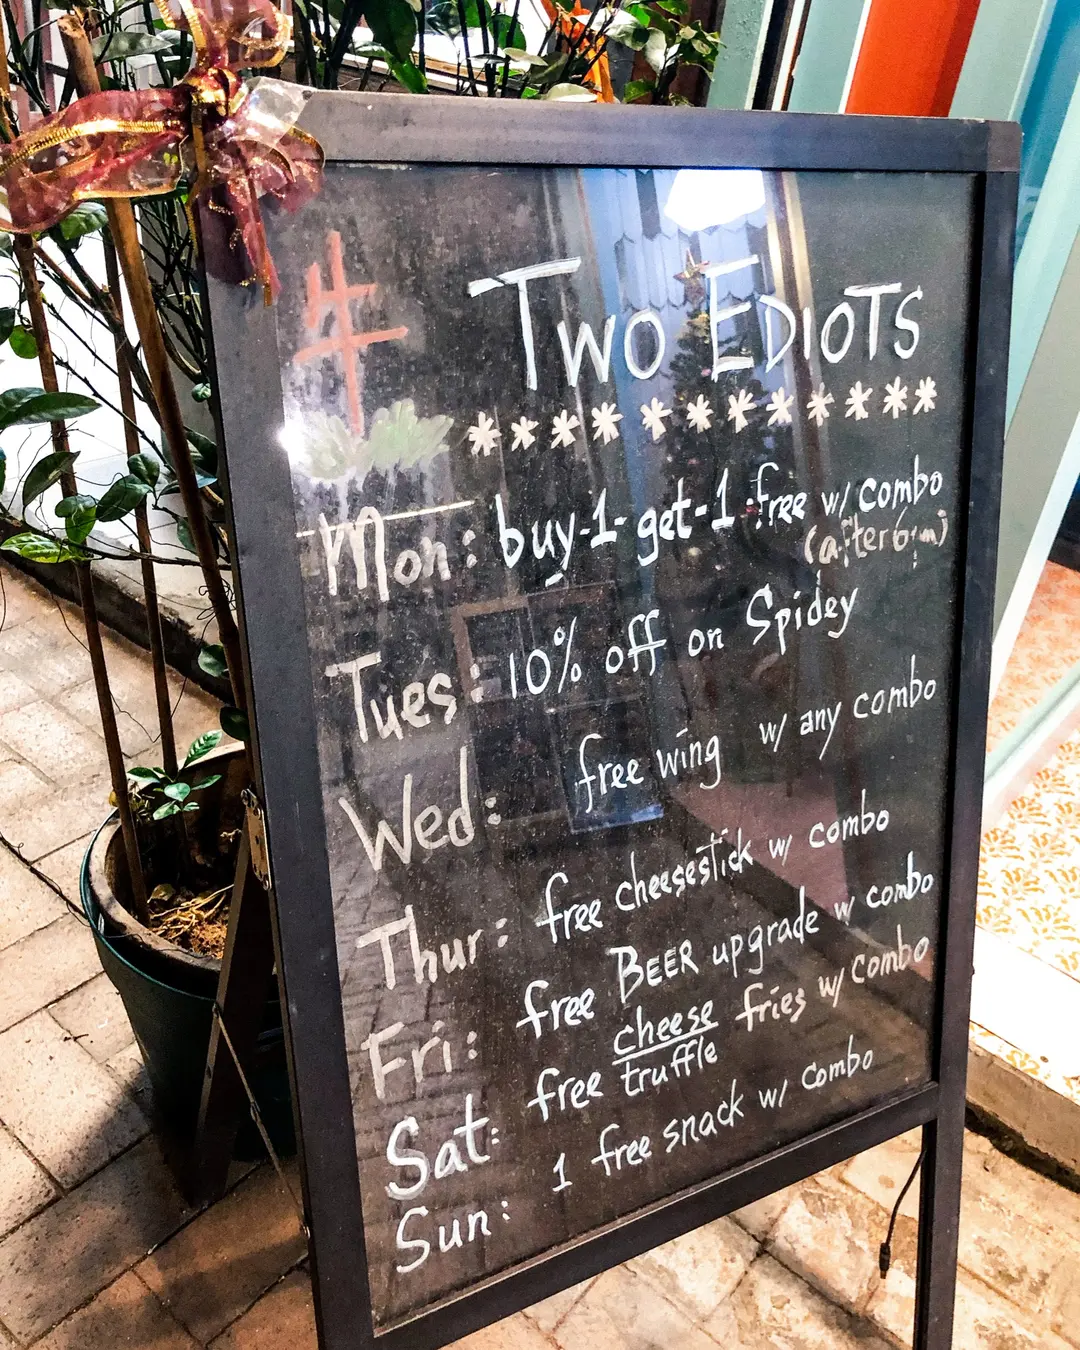 牛
TWO EDIOTS
* * * * * * * * * * * *
Mon: buy-1-get-1 free w/ combo
(after 6pm)
Tues: 10% off on Spidey
Wed: free wing w/ any combo
Thur: free cheesestick w/ combo
Fri: free BEER upgrade w/ combo
Sat: free cheese truffle fries w/ combo
Sun: 1 free snack w/ combo